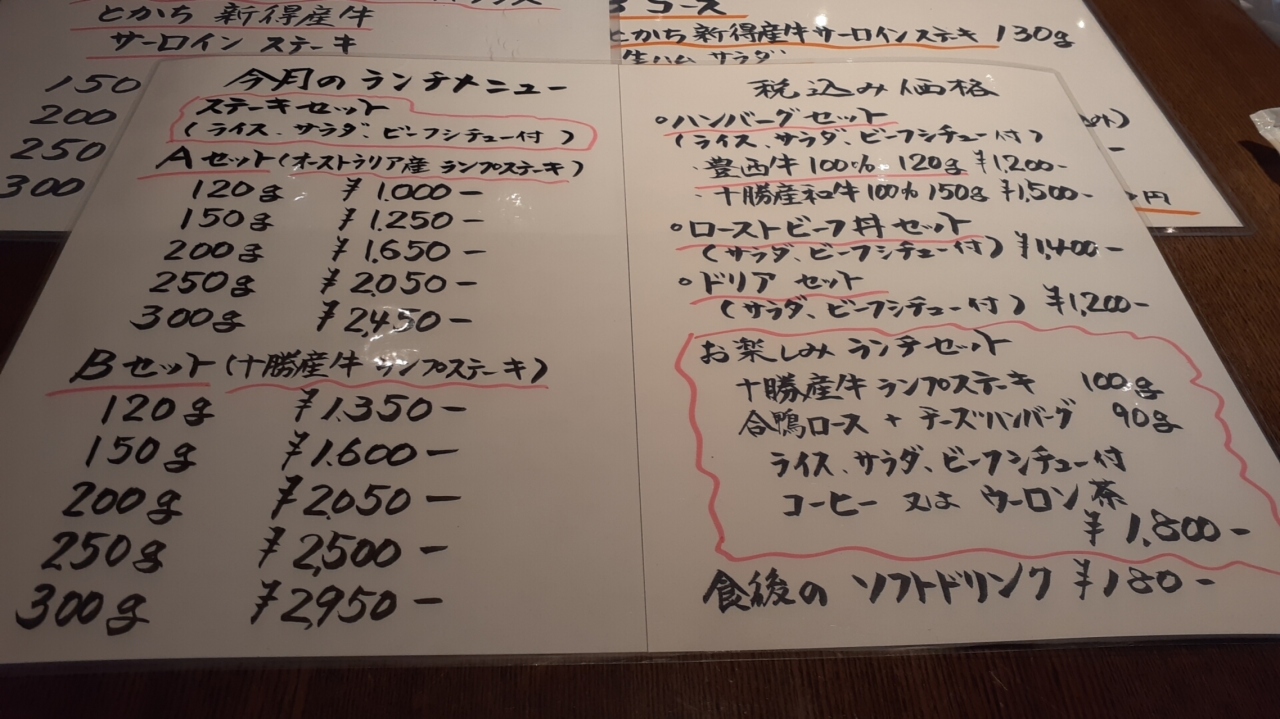 とかち 新得産牛
サーロイン ステーキ
150
200
250
300
コース
とかち 新得産牛サーロインステーキ 130g
生ハム サラダ
円
今月の ランチメニュー
ステーキセット
(ライス、サラダ、ビーフシチュー付)
Aセット(オーストラリア産 ランプステーキ)
120g ¥1.000-
150g ¥1.250-
200g ¥1.650-
250g ¥2.050-
300g ¥2,450-
Bセット(十勝産牛 ランプステーキ)
120g ¥1.350-
150g ¥1.600-
200g ¥2.050-
250g ¥2,500-
300g ¥2,950-
税込み価格
・ハンバーグセット
(ライス、サラダ、ビーフシチュー付)
・豊西牛100% 120g ¥1,200-
・十勝産和牛100% 150g ¥1,500-
・ローストビーフ丼セット
(サラダ、ビーフシチュー付) ¥1,400-
・ドリア セット
(サラダ、ビーフシチュー付) ¥1,200-
お楽しみ ランチセット
十勝産牛 ランプステーキ 100g
合鴨ロース + チーズハンバーグ 90g
ライス、サラダ、ビーフシチュー付
コーヒー 又は ウーロン茶
¥1,800-
食後の ソフトドリンク ¥180-